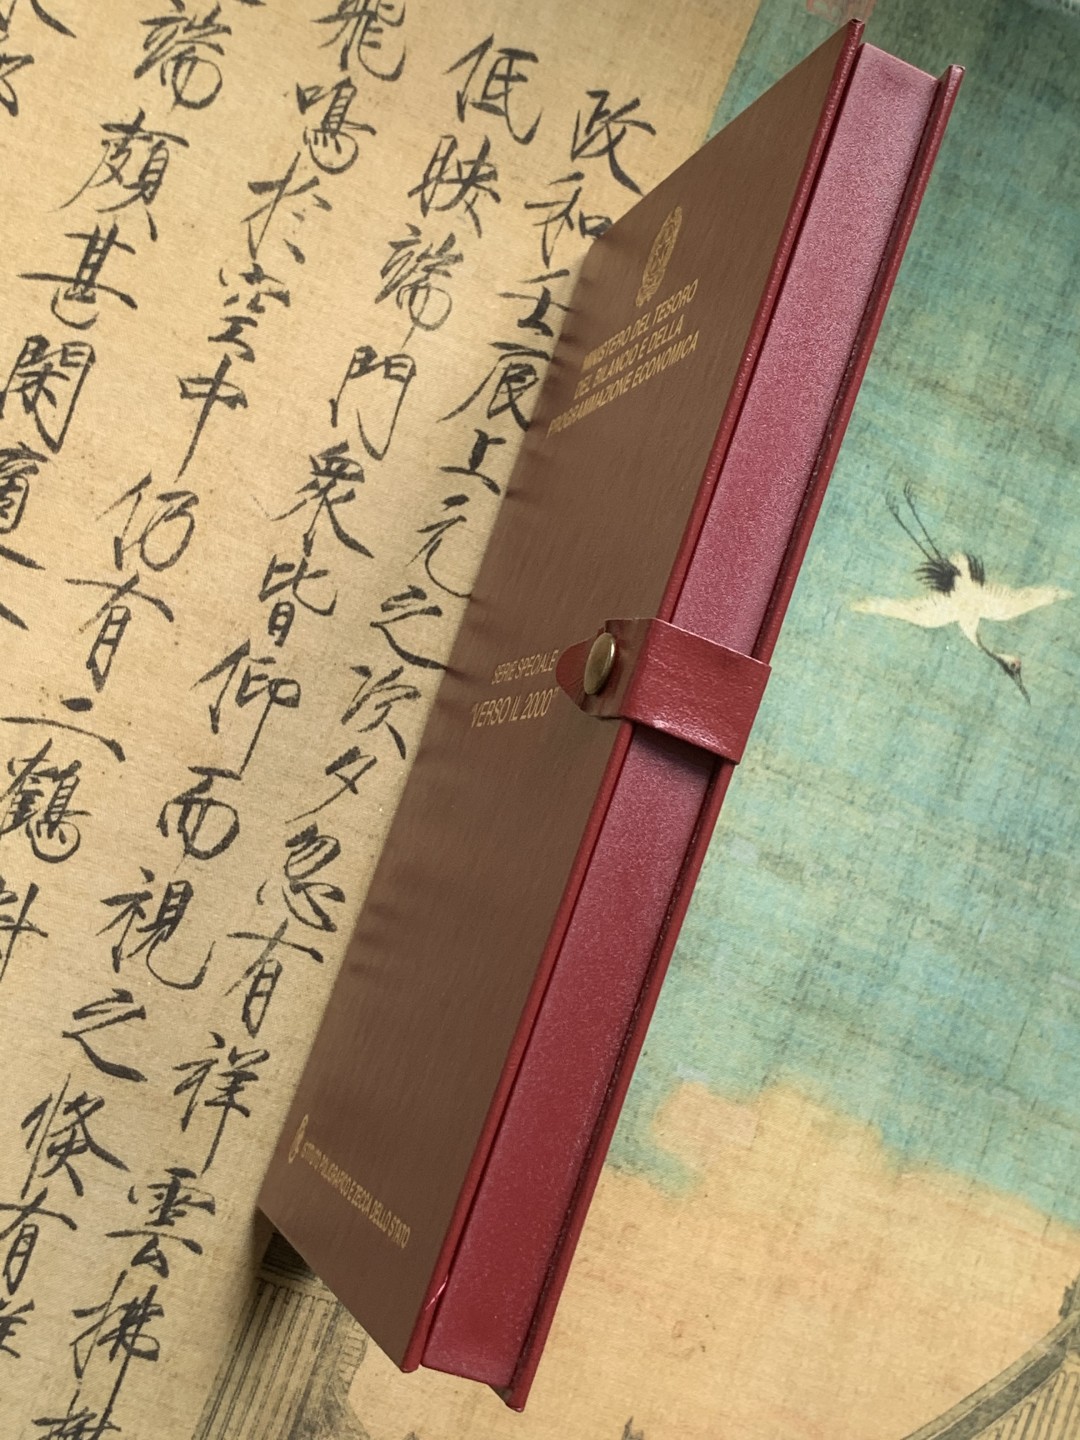 MINISTERO DEL TESORO
DEL BILANCIO E DELLA
PROGRAMMAZIONE ECONOMICA
SERIE SPECIALE
"VERSO IL 2000"
ISTITUTO POLIGRAFICO E ZECCA DELLO STATO
政和壬辰上元之次夕忽有祥雲拂
低映端門衆皆仰而視之倏有
飛鳴於空中仍有二鶴對
端頗甚閑適